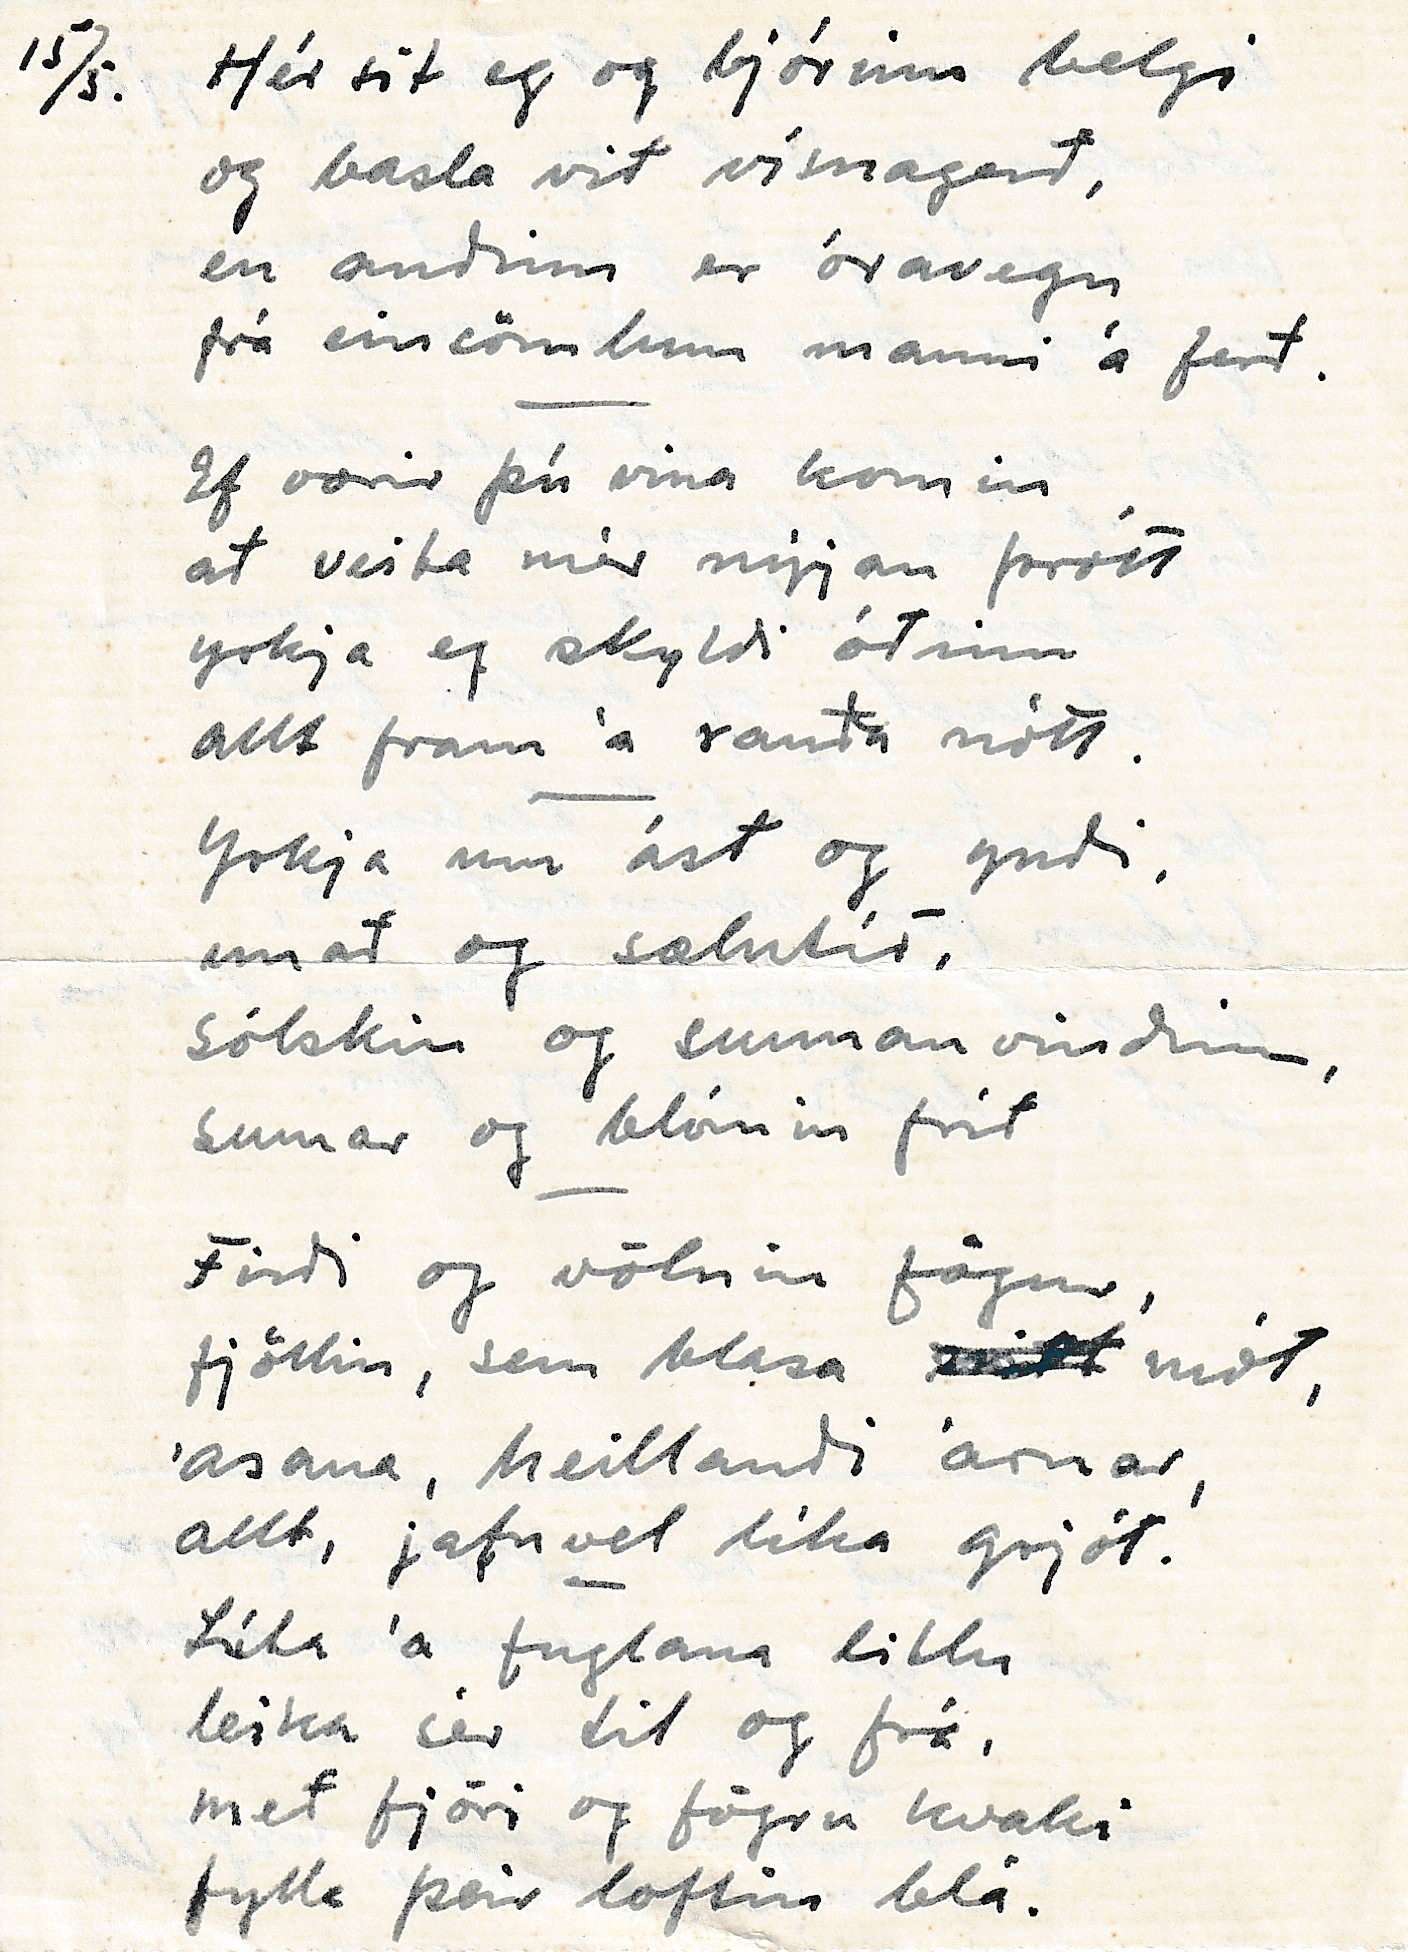 15/5. Hér sit eg og bjórinn belgi
og basla við vísnagerð,
en andinn er óravegu
frá einsömlum manni á ferð.
Ef værir þú vina komin
að veita mér nýjan þrótt
yrkja eg skyldi óðinn
allt fram á rauða nótt.
Yrkja um ást og yndi,
unað og sælutíð,
sólskin og sunnanvindinn,
sumar og blómin fríð
Firði og vötnin fögur,
fjöllin, sem blasa mót,
ásana, heillandi árnar,
allt, jafnvel líka grjót.
Líta á fuglana litlu
leika sér til og frá,
með fjöri og fögru kvaki
fylla þeir loftin blá.